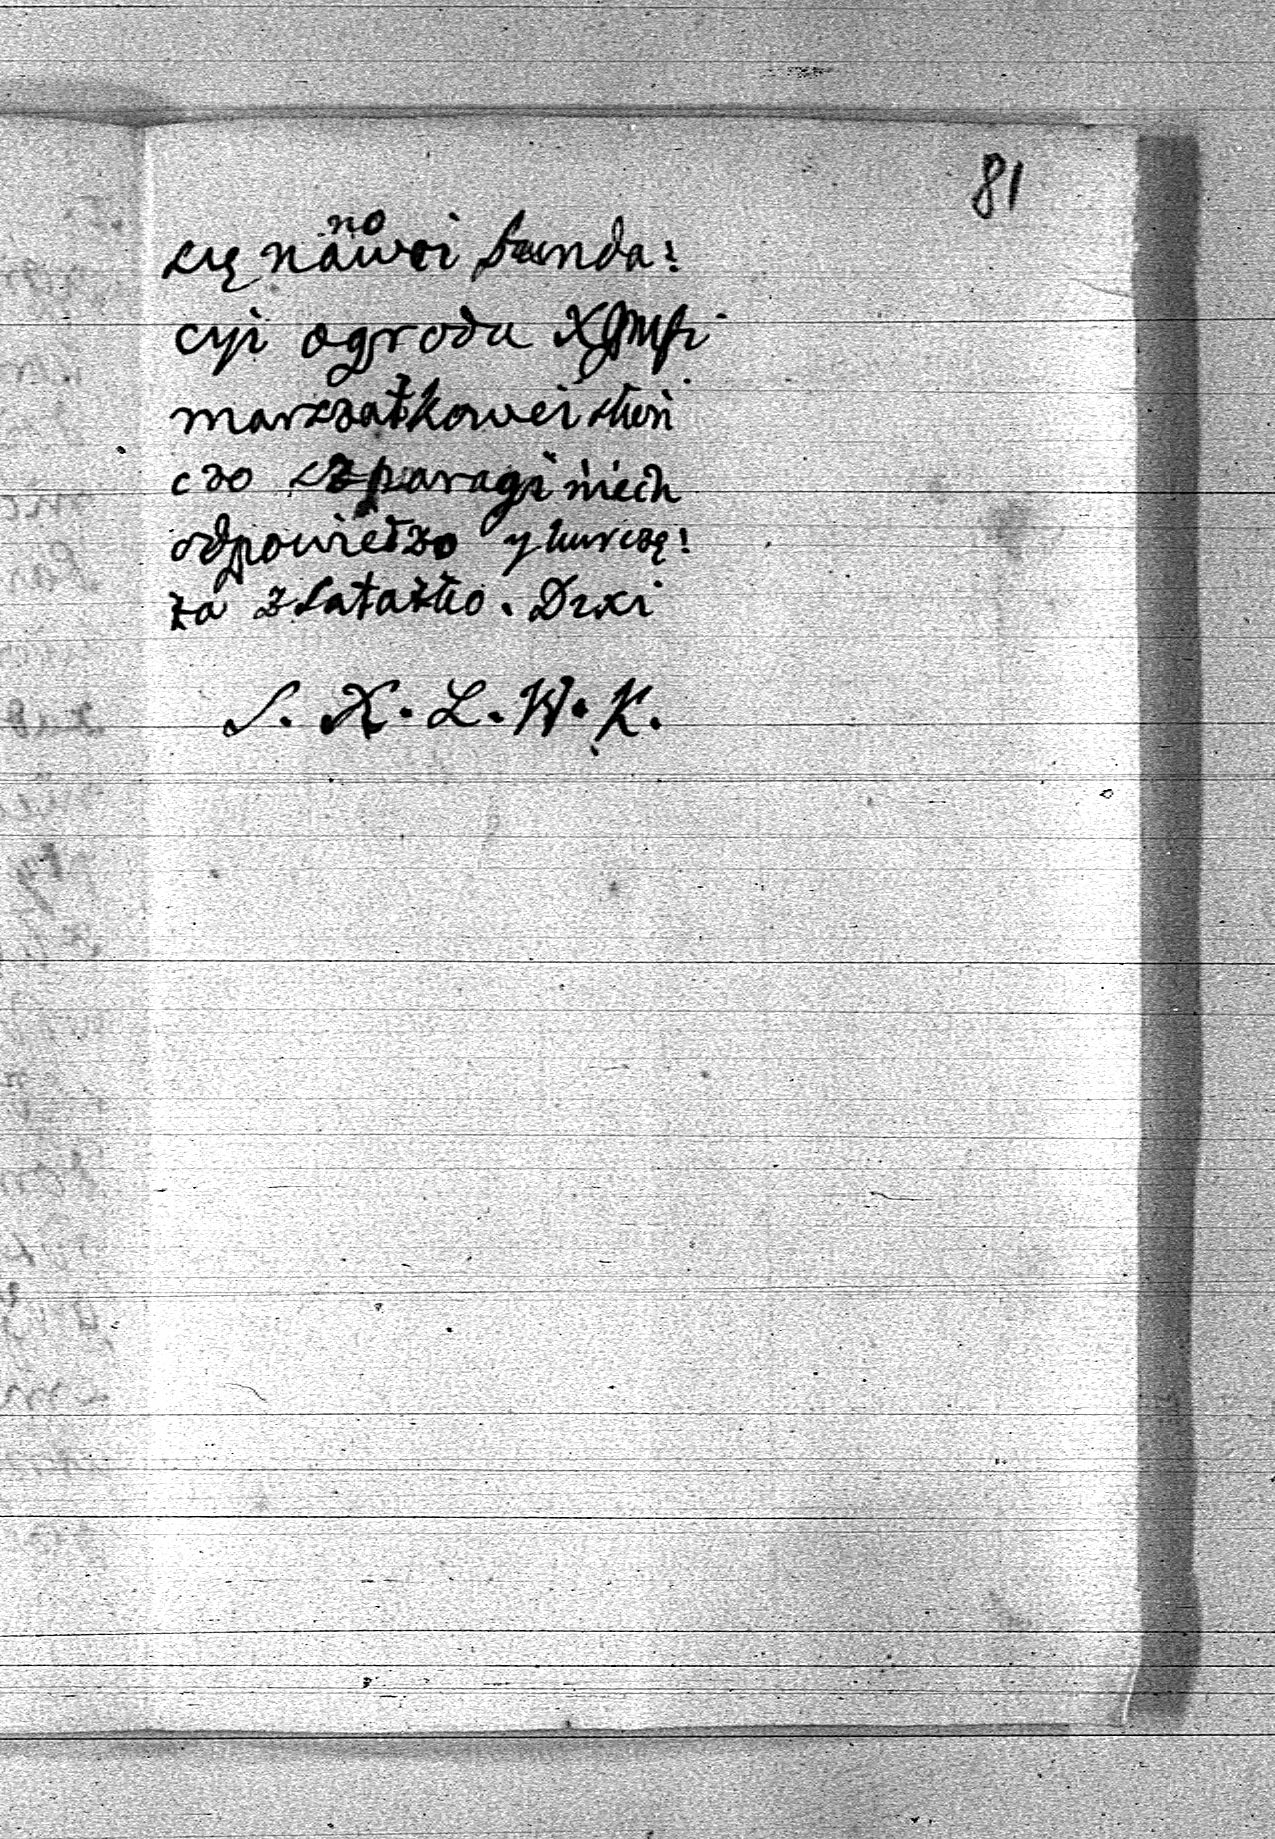 81
no
się nawei funda:
cyi ogroda XJMsi
marszałkowei słon
czo szparagi niech
odpowiedzo y kurczę:
ta z sałatko. Dixi
S. X. L. W. K.